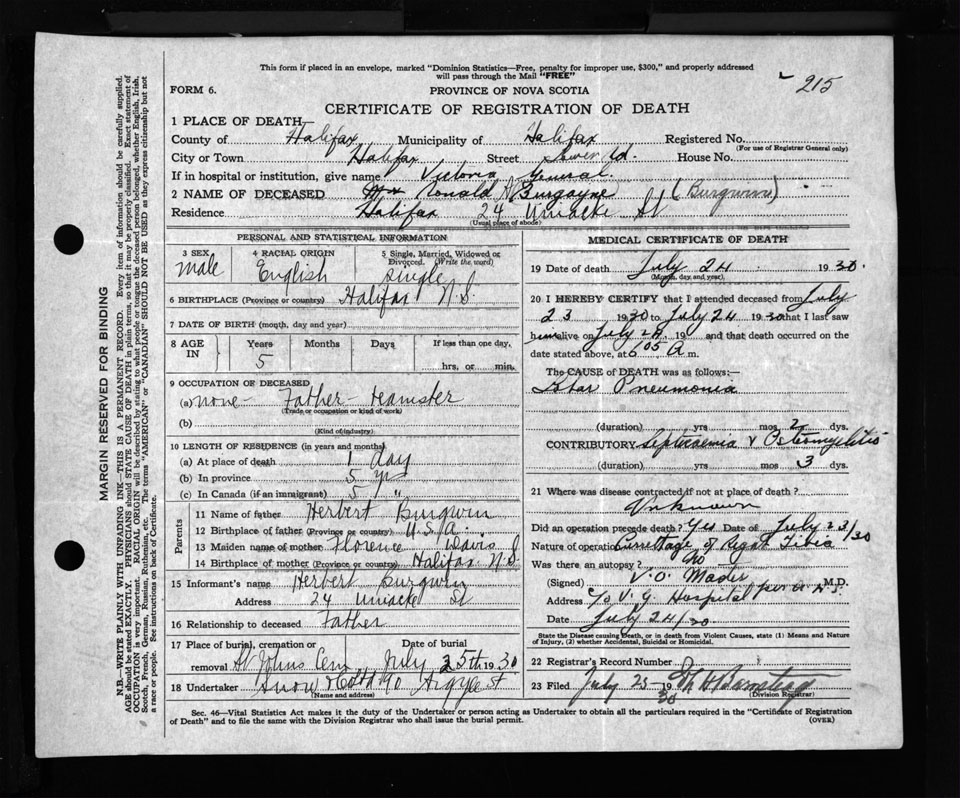 This form if placed in an envelope, marked "Dominion Statistics—Free, penalty for improper use, $300," and properly addressed
will pass through the Mail "FREE"
215
FORM 6.
PROVINCE OF NOVA SCOTIA
CERTIFICATE OF REGISTRATION OF DEATH
1 PLACE OF DEATH—
County of Halifax Municipality of Halifax Registered No.
(For use of Registrar General only)
City or Town Halifax Street Tower Rd. House No.
If in hospital or institution, give name Victoria General.
2 NAME OF DECEASED Ronald Burgayne (Burgwin)
Residence Halifax 24 Uniacke St
(Usual place of abode)
PERSONAL AND STATISTICAL INFORMATION
3 SEX
Male
4 RACIAL ORIGIN
English
5 Single, Married, Widowed or
Divorced. (Write the word)
single
6 BIRTHPLACE (Province or country) Halifax N.S.
7 DATE OF BIRTH (month, day and year)
8 AGE IN
Years Months Days If less than one day,
5 hrs. or min.
9 OCCUPATION OF DECEASED
(a) none - Father - teamster
(Trade or occupation or kind of work)
(b)
(Kind of industry)
10 LENGTH OF RESIDENCE (in years and months)
(a) At place of death 1 day
(b) In province 5 yrs
(c) In Canada (if an immigrant) 5 "
Parents
11 Name of father Herbert Burgwin
12 Birthplace of father (Province or country) U.S.A.
13 Maiden name of mother Florence Davis
14 Birthplace of mother (Province or country) Halifax N.S
15 Informant's name Herbert Burgwin
Address 24 Uniacke St
16 Relationship to deceased Father
17 Place of burial, cremation or Date of burial
removal St Johns Cem July 25th 1930
18 Undertaker Snow & Co Ltd 90 Argyle St
(Name and address)
MEDICAL CERTIFICATE OF DEATH
19 Date of death July 24 1930.
(Month, day and year)
20 I HEREBY CERTIFY that I attended deceased from July
23 1930 to July 24 1930 that I last saw
him alive on July 24 19 and that death occurred on the
date stated above, at 6 05 A m.
The CAUSE of DEATH was as follows:—
Lobar Pneumonia
(duration) yrs mos 2 dys.
CONTRIBUTORY Septicaemia & Osteomyelitis
(duration) yrs mos 3 dys.
21 Where was disease contracted if not at place of death?
Unknown
Did an operation precede death? Yes Date of July 23/30
Nature of operation Curettage of Right Tibia
Was there an autopsy? No
(Signed) V.O. Mader M.D.
Address c/o V.G. Hospital
Date July 24/30
State the Disease causing Death, or in death from Violent Causes, state (1) Means and Nature
of Injury, (2) whether Accidental, Suicidal or Homicidal.
22 Registrar's Record Number
23 Filed July 25 1930
(Division Registrar)
Sec. 46—Vital Statistics Act makes it the duty of the Undertaker or person acting as Undertaker to obtain all the particulars required in the "Certificate of Registration
of Death" and to file the same with the Division Registrar who shall issue the burial permit.
(OVER)
MARGIN RESERVED FOR BINDING
N.B.—WRITE PLAINLY WITH UNFADING INK—THIS IS A PERMANENT RECORD. Every item of information should be carefully supplied.
AGE should be stated EXACTLY. PHYSICIANS should STATE CAUSE OF DEATH in plain terms, so that it may be properly classified. Exact statement of
OCCUPATION is very important. RACIAL ORIGIN will be described by stating to what people or tongue the deceased person belonged, whether English, Irish,
Scotch, French, German, Russian, Ruthenian, etc. The terms "AMERICAN" or "CANADIAN" SHOULD NOT BE USED as they express citizenship but not
a race or people. See instructions on back of Certificate.